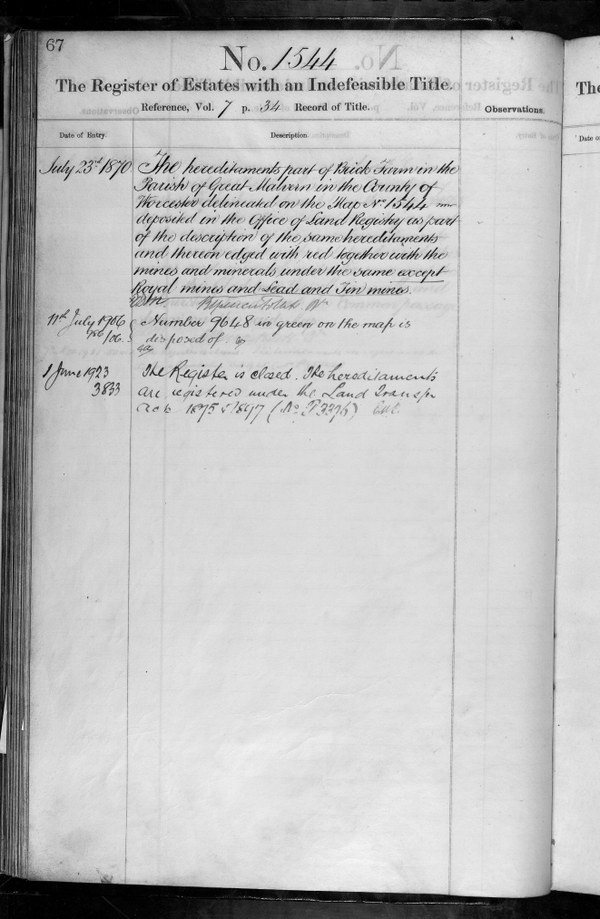 67
No. 1544
The Register of Estates with an Indefeasible Title.
Reference, Vol. 7 p. 34 Record of Title.
Observations.
Date of Entry.
Description.
July 23rd 1870
The hereditaments part of Brick Farm in the
Parish of Great Malvern in the County of
Worcester delineated on the Map No 1544
deposited in the Office of Land Registry as part
of the description of the same hereditaments
and thereon edged with red together with the
mines and minerals under the same except
Royal mines and Lead and Tin mines.
11th July 1906
986/06.
Number 9648 in green on the map is
disposed of
1 June 1923
3833
The Register is closed. The hereditaments
are registered under the Land Transfer
Acts 1875 & 1897 (No. P3376)
The
Date of